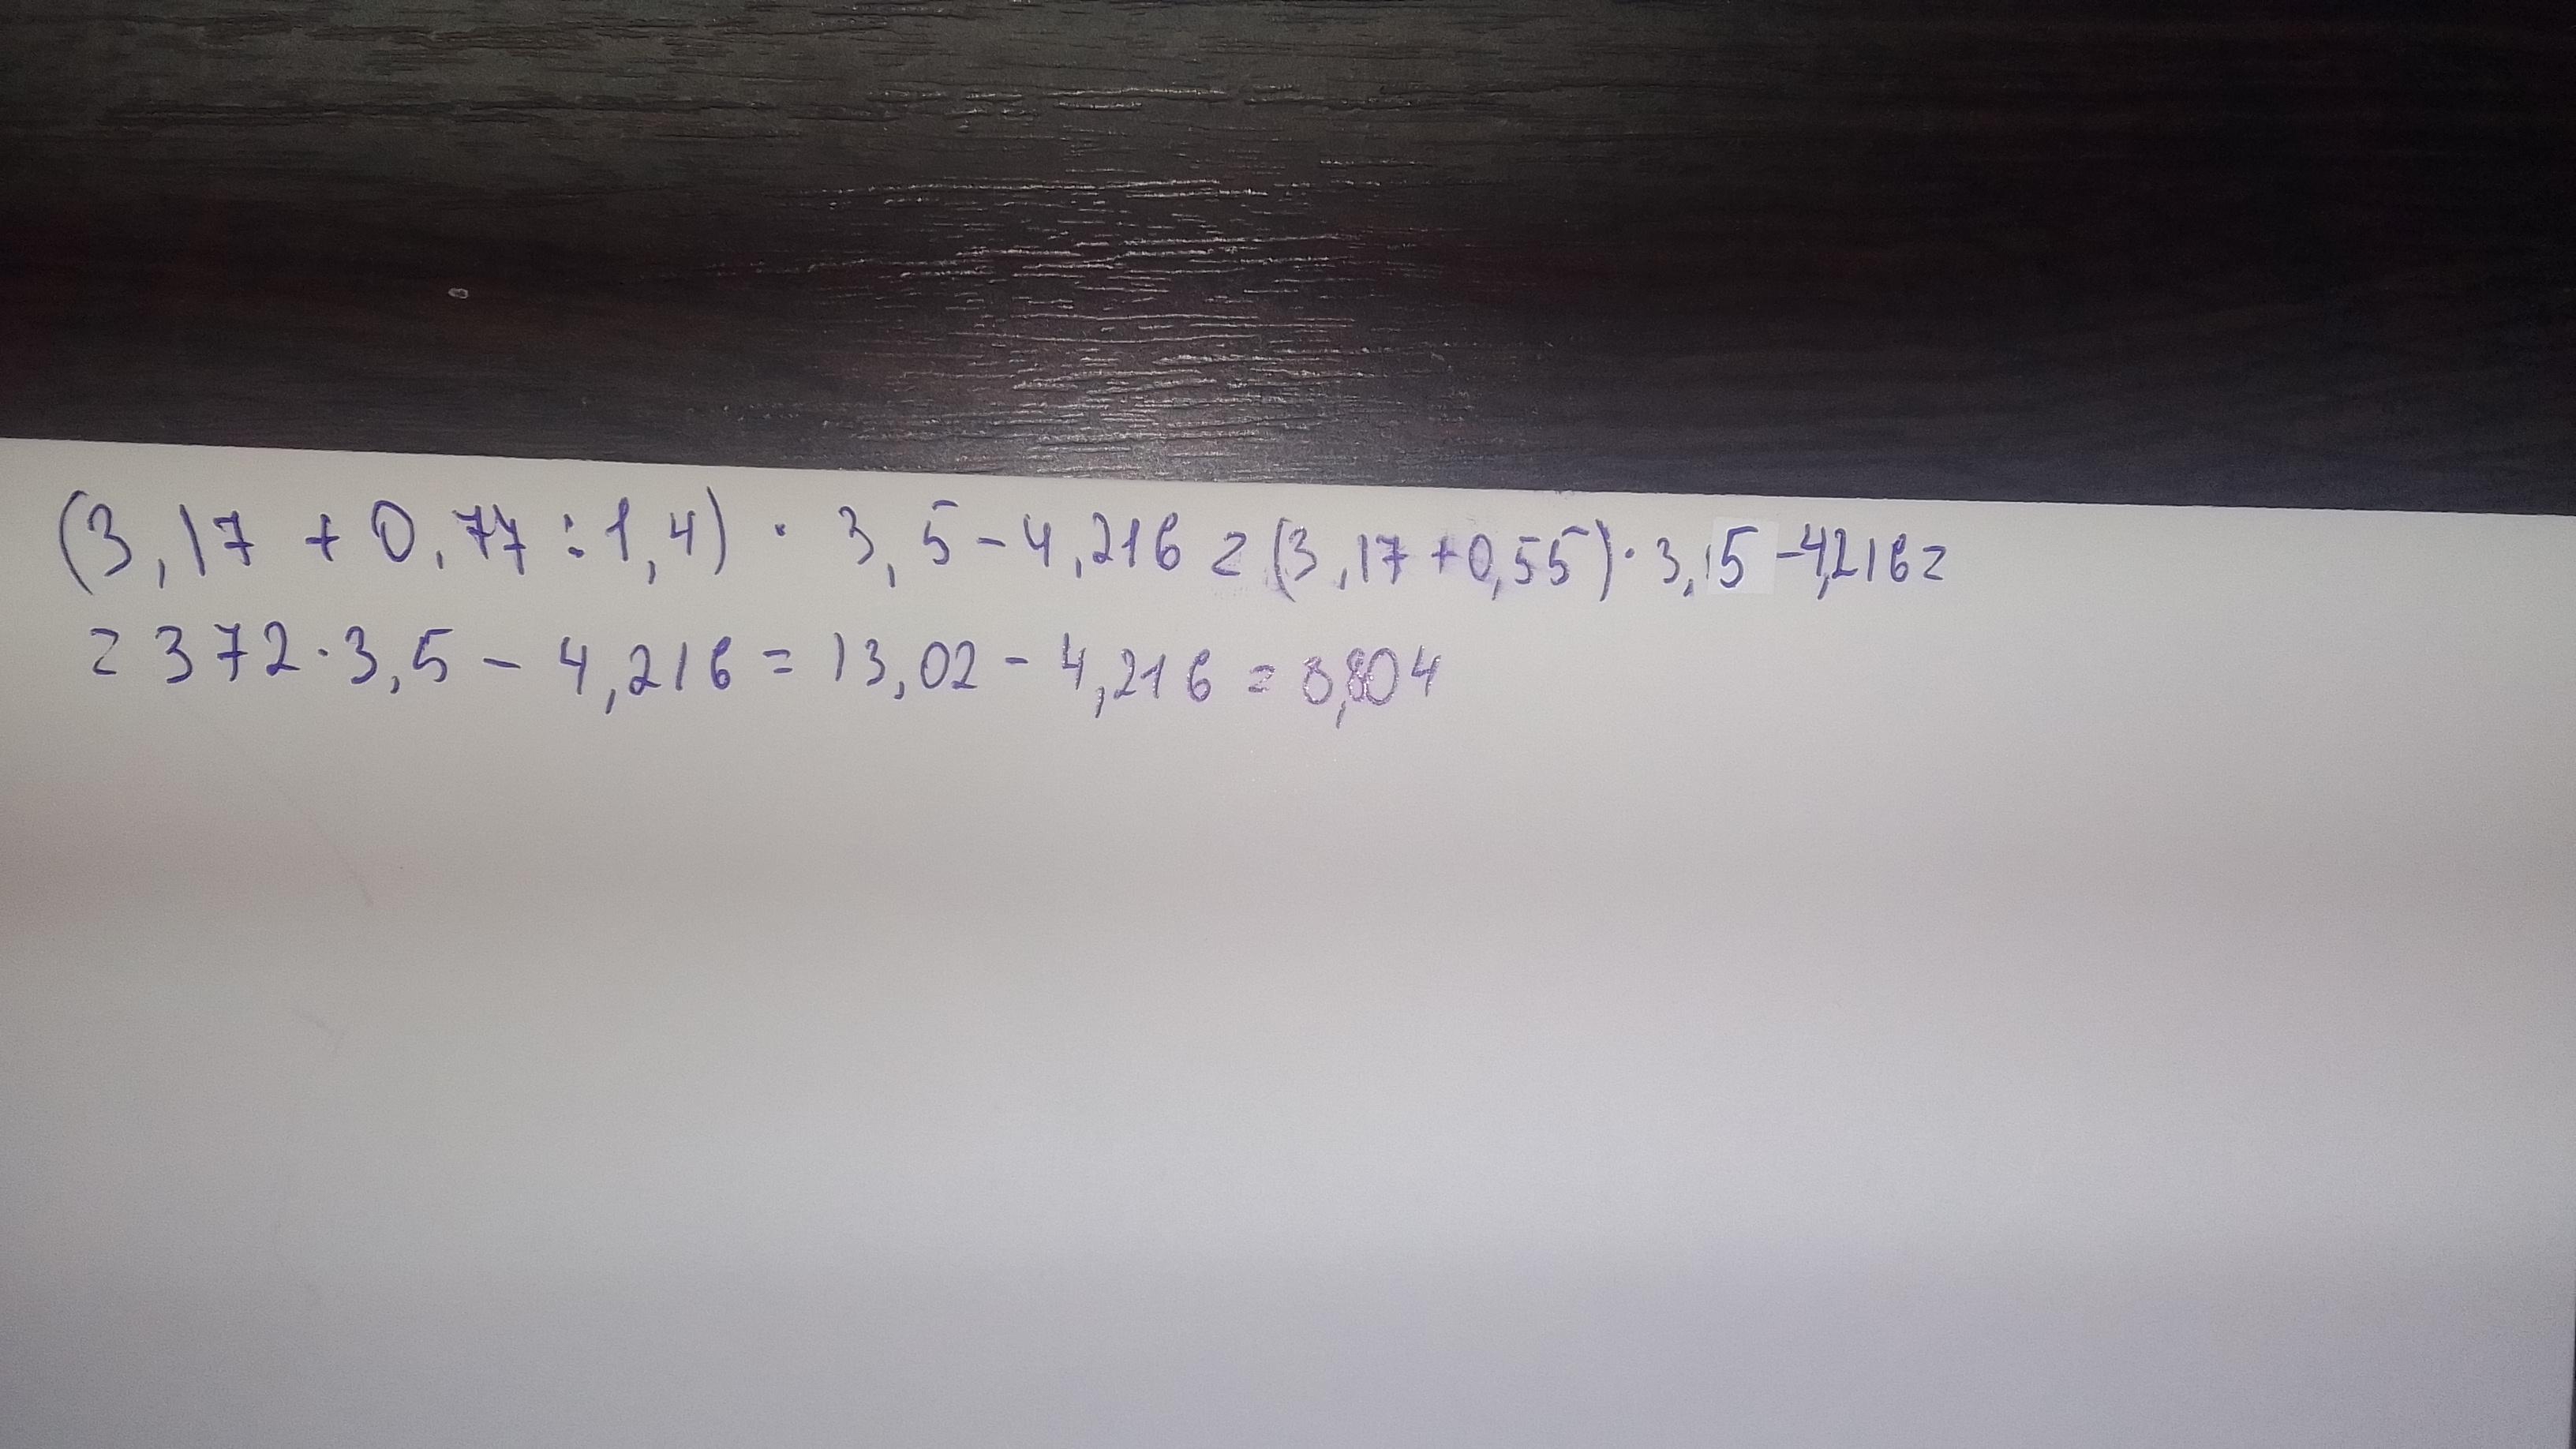 (3,17 + 0,77 : 1,4) · 3,5 - 4,216 = (3,17 + 0,55) · 3,15 - 4,216 =
= 372 · 3,5 - 4,216 = 13,02 - 4,216 = 8,804